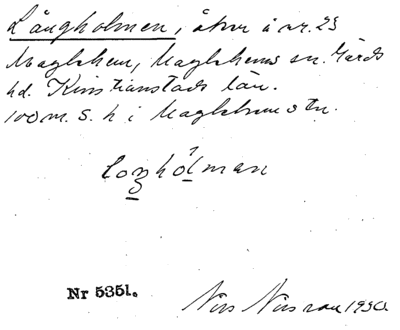 Långholmen, åker å nr. 23
Maglehem, Maglehems sn. Gärds
hd. Kristianstads län.
100 m. S. h i Maglehems sn.
loŋhólman
Nr 5351.
Nils Nilsson 1930.